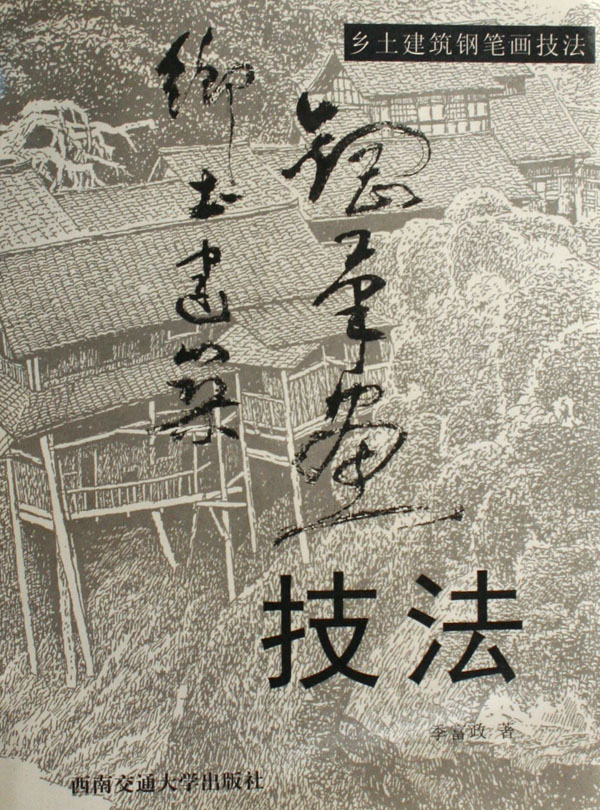 乡土建筑钢笔画技法
鄉土建築
鋼筆畫
技法
李富政 著
西南交通大学出版社